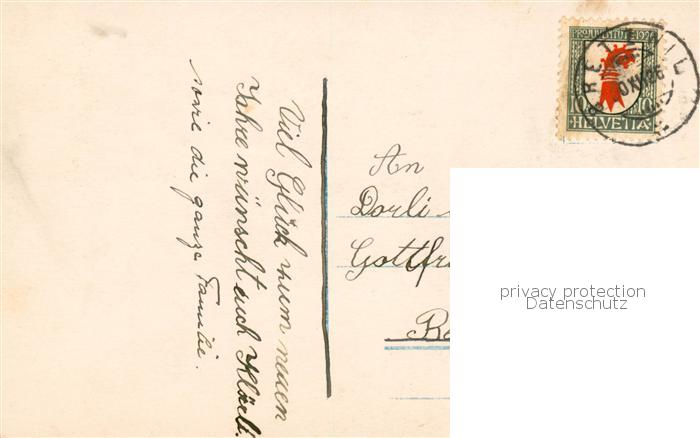 Viel Glück zum neuen
Jahre wünscht auch Klärli.
sowie die ganze Familie.
PRO JUVENTUTE 1926
10 10
HELVETIA
An
Dorli
Gottfr
privacy protection
Datenschutz